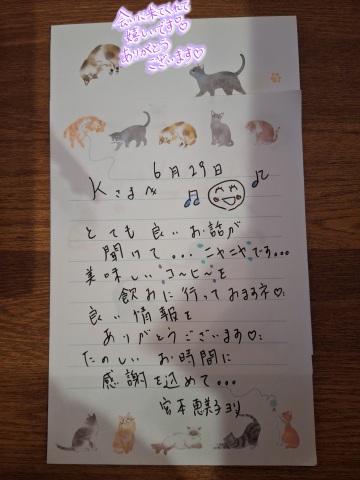 会いに来てくれて
嬉しいです♡
ありがとう
ございます♡
6月29日
Kさまへ
とても良いお話が
聞けて...ニヤニヤです...
美味しいコーヒーを
飲みに行っておりますネ♡
良い情報を
ありがとうございます♡
たのしいお時間に
感謝を込めて...
宮本恵美子より